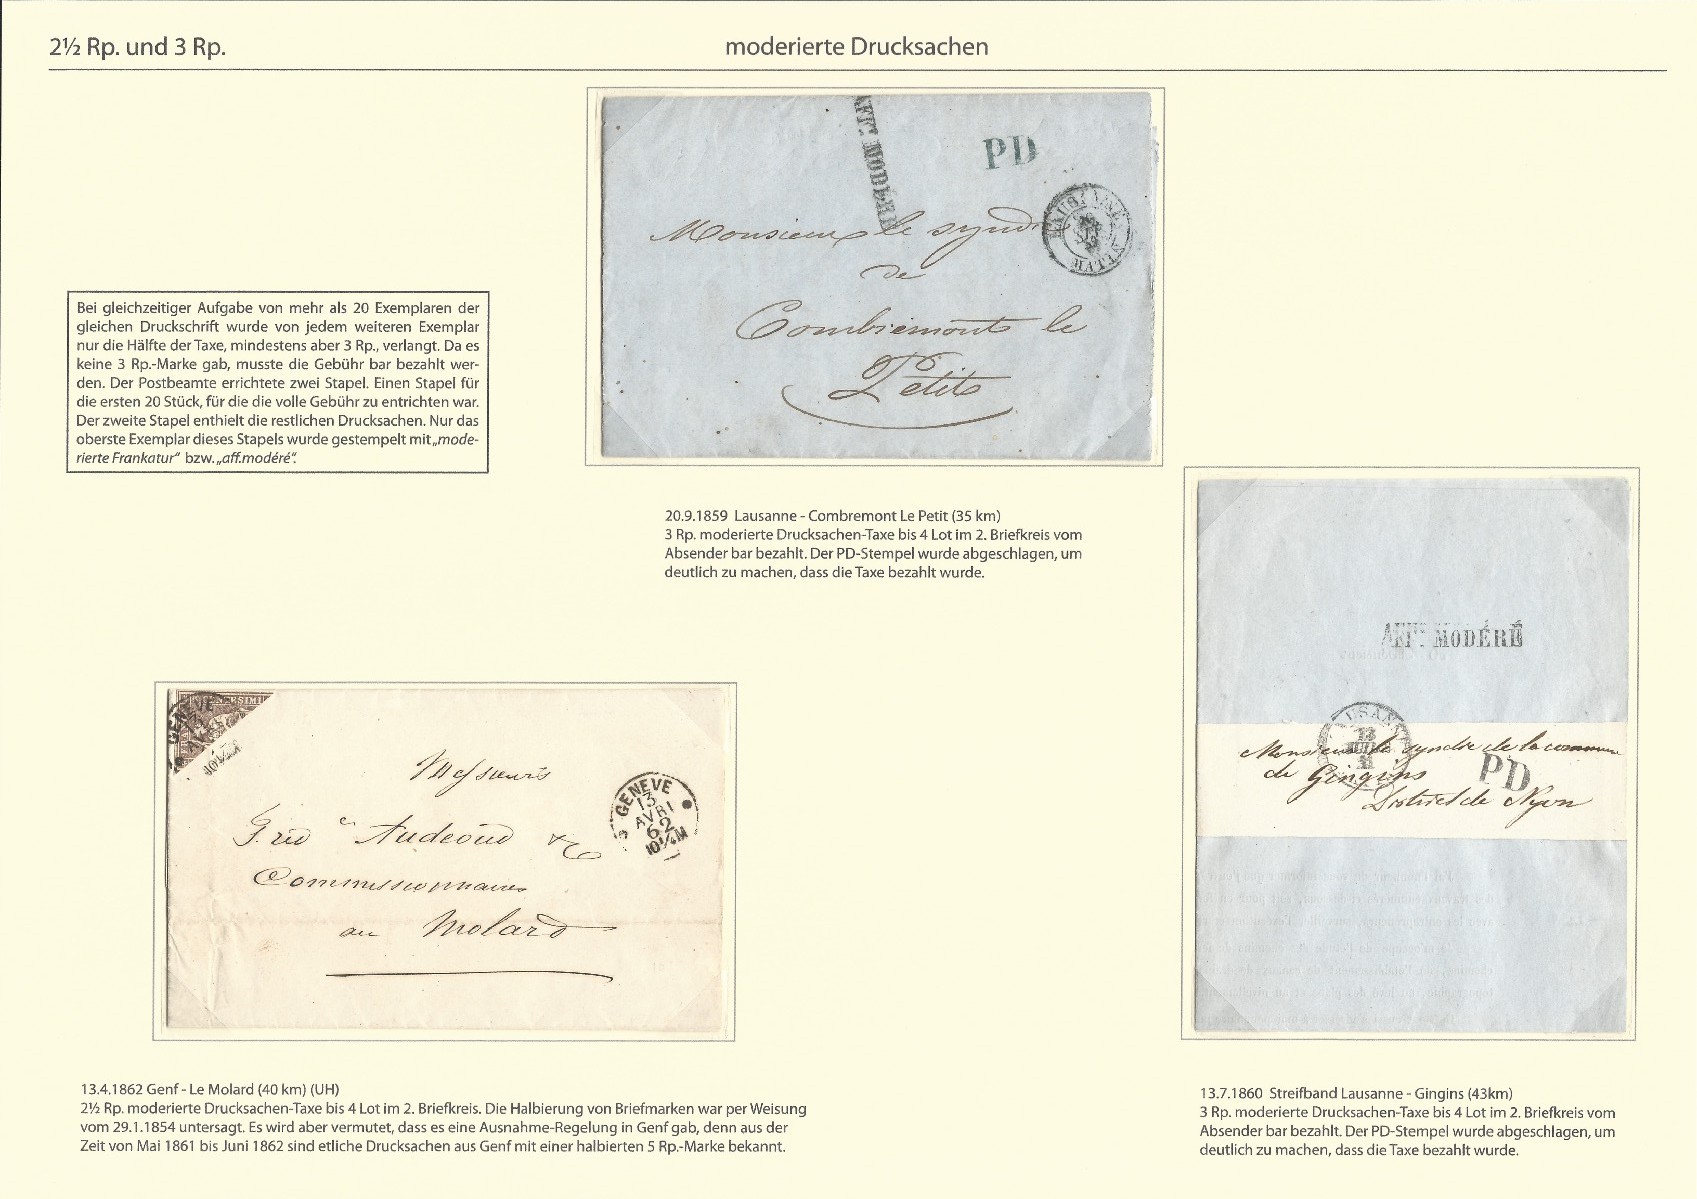 2½ Rp. und 3 Rp.
moderierte Drucksachen
AFFᵗ MODÉRÉ
PD
LAUSANNE
Monsieur le syndic
de
Combremont le
Petit
Bei gleichzeitiger Aufgabe von mehr als 20 Exemplaren der
gleichen Druckschrift wurde von jedem weiteren Exemplar
nur die Hälfte der Taxe, mindestens aber 3 Rp., verlangt. Da es
keine 3 Rp.-Marke gab, musste die Gebühr bar bezahlt wer-
den. Der Postbeamte errichtete zwei Stapel. Einen Stapel für
die ersten 20 Stück, für die die volle Gebühr zu entrichten war.
Der zweite Stapel enthielt die restlichen Drucksachen. Nur das
oberste Exemplar dieses Stapels wurde gestempelt mit „mode-
rierte Frankatur“ bzw. „aff.modéré“.
20.9.1859 Lausanne - Combremont Le Petit (35 km)
3 Rp. moderierte Drucksachen-Taxe bis 4 Lot im 2. Briefkreis vom
Absender bar bezahlt. Der PD-Stempel wurde abgeschlagen, um
deutlich zu machen, dass die Taxe bezahlt wurde.
AFFᵗ MODÉRÉ
LAUSANNE
13
Monsieur le syndic de la commune
de Gingins
PD
District de Nyon
GENÈVE
13
10¼M
Messieurs
Audeoud &
Commissionnaires
au Molard
GENÈVE
13
AVRI
62
10¼M
13.4.1862 Genf - Le Molard (40 km) (UH)
2½ Rp. moderierte Drucksachen-Taxe bis 4 Lot im 2. Briefkreis. Die Halbierung von Briefmarken war per Weisung
vom 29.1.1854 untersagt. Es wird aber vermutet, dass es eine Ausnahme-Regelung in Genf gab, denn aus der
Zeit von Mai 1861 bis Juni 1862 sind etliche Drucksachen aus Genf mit einer halbierten 5 Rp.-Marke bekannt.
13.7.1860 Streifband Lausanne - Gingins (43km)
3 Rp. moderierte Drucksachen-Taxe bis 4 Lot im 2. Briefkreis vom
Absender bar bezahlt. Der PD-Stempel wurde abgeschlagen, um
deutlich zu machen, dass die Taxe bezahlt wurde.